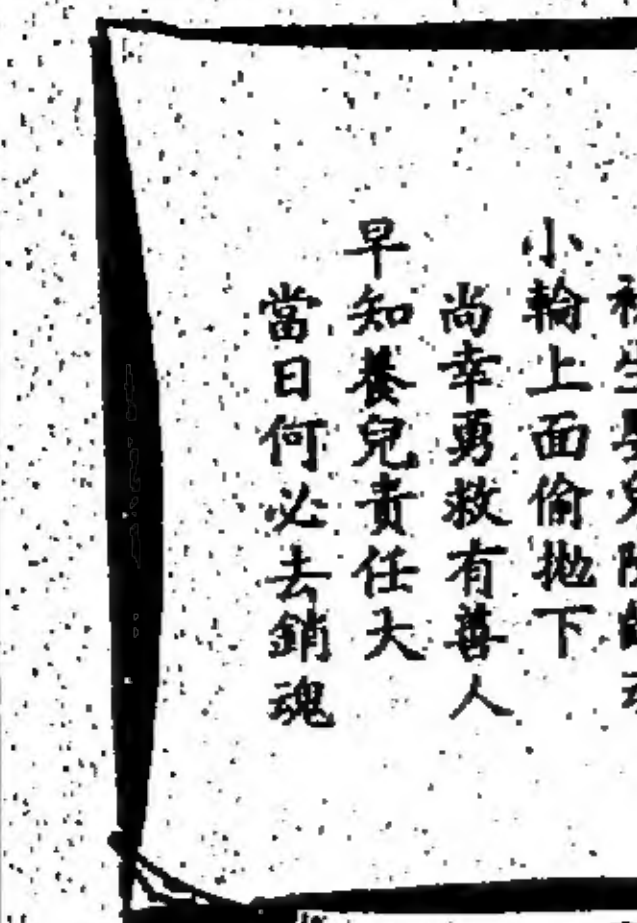 小輪上面偷拋下
尚幸勇救有善人
早知養兒責任大
當日何必去銷魂